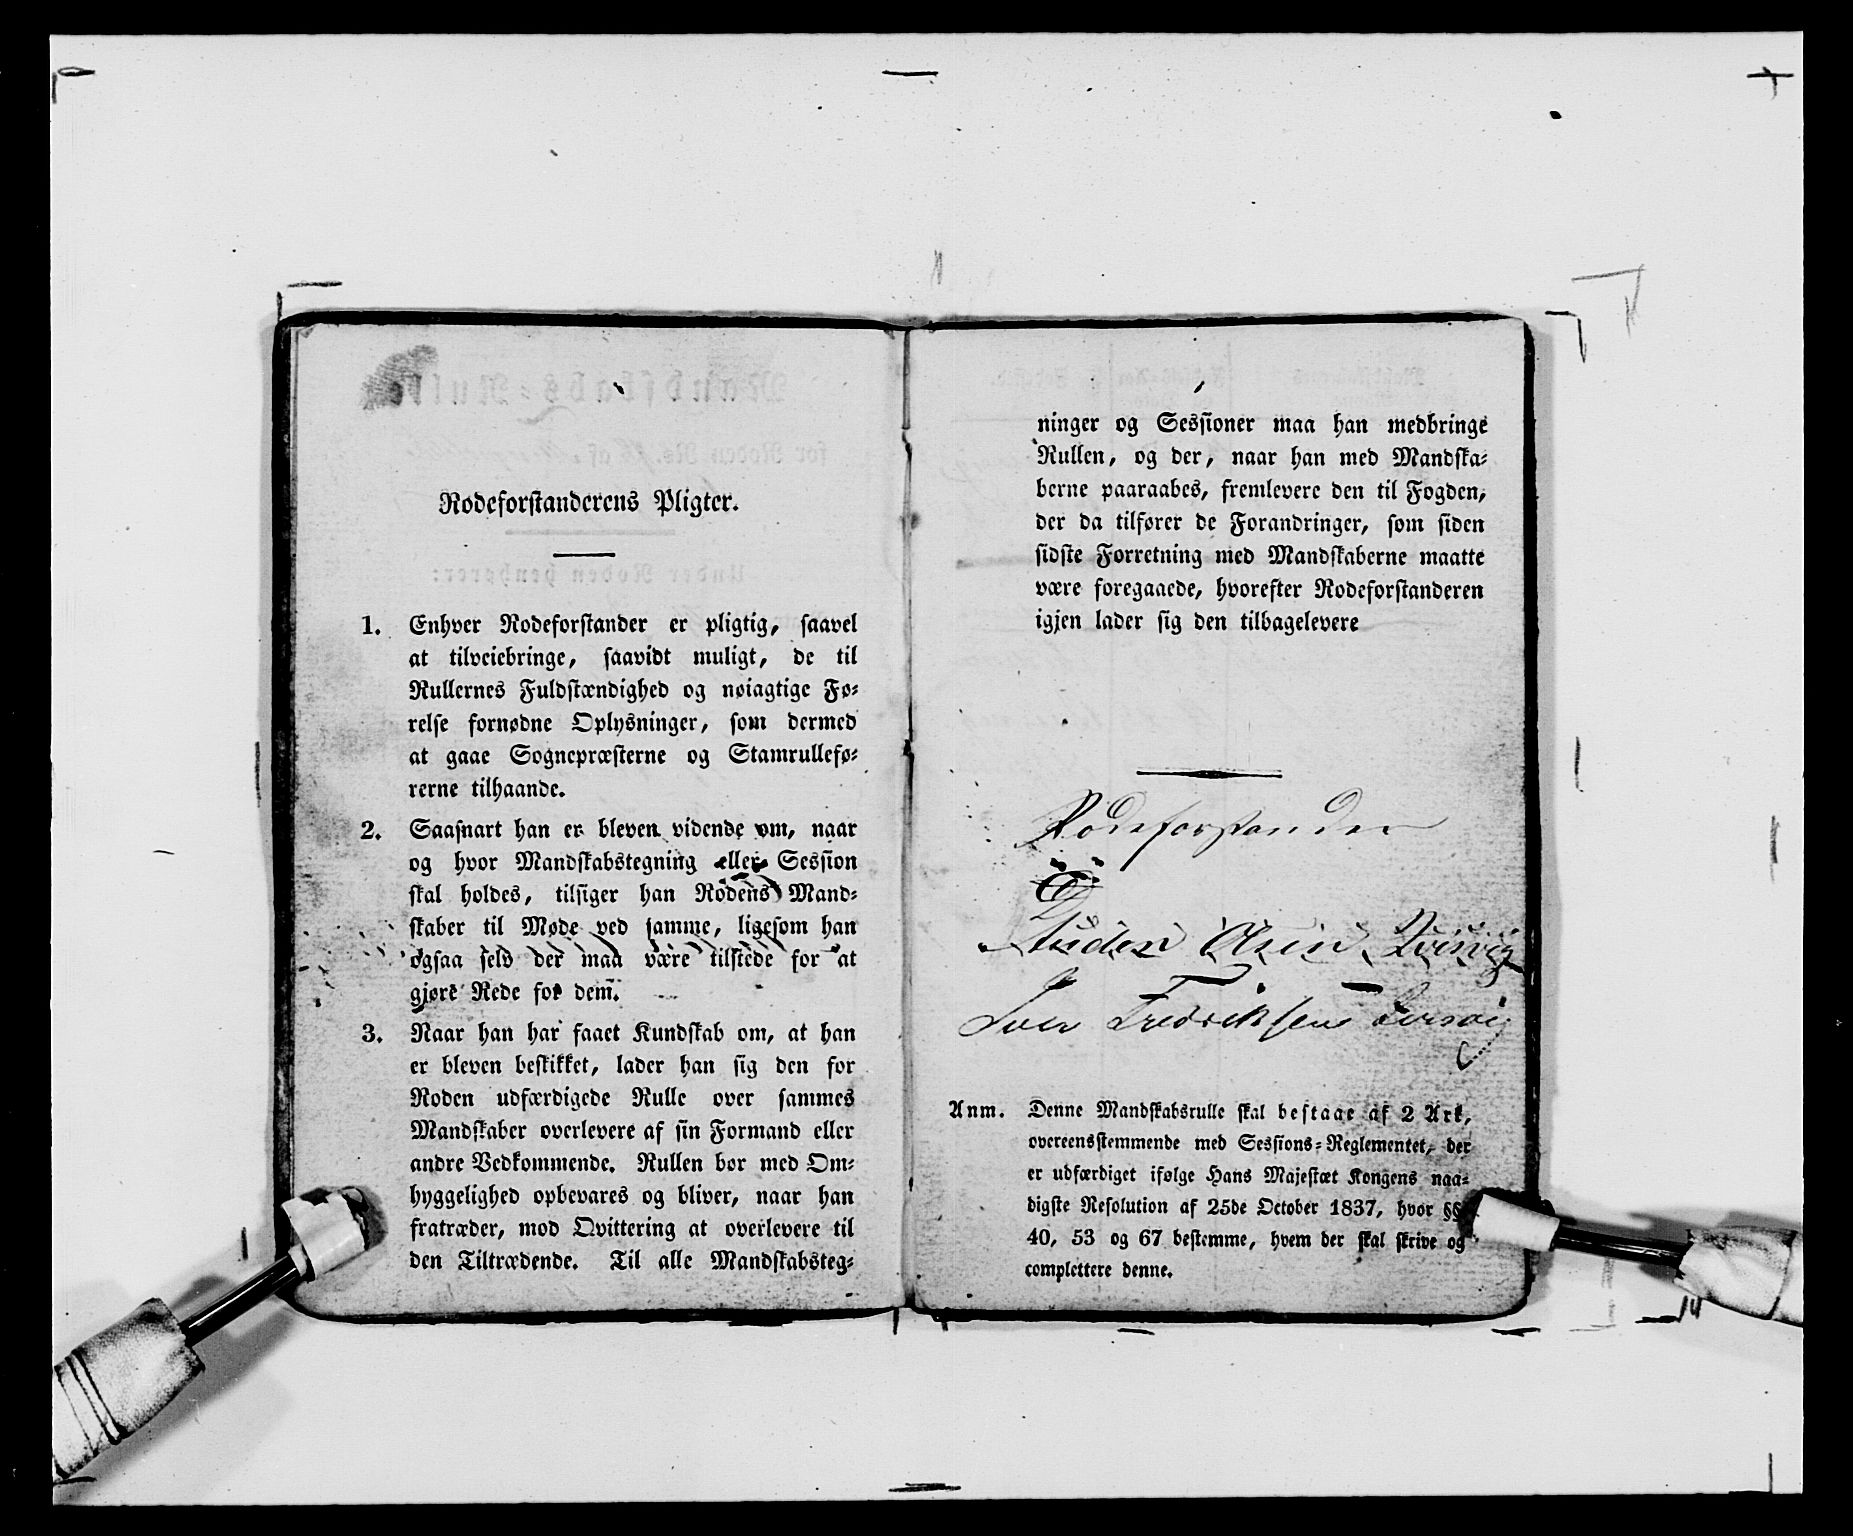 Rodeforstanderens Pligter.
1. Enhver Rodeforstander er pligtig, saavel
at tilveiebringe, saavidt muligt, de til
Rullernes Fuldstændighed og nøiagtige Fø-
relse fornødne Oplysninger, som dermed
at gaae Sognepræsterne og Stamrullefø-
rerne tilhaande.
2. Saasnart han er bleven vidende om, naar
og hvor Mandskabstegning eller Session
skal holdes, tilsiger han Rodens Mand-
skaber til Møde ved samme, ligesom han
ogsaa selv der maa være tilstede for at
gjøre Rede for dem.
3. Naar han har faaet Kundskab om, at han
er bleven beskikket, lader han sig den for
Roden udfærdigede Rulle over sammes
Mandskaber overlevere af sin Formand eller
andre Vedkommende. Rullen bør med Om-
hyggelighed opbevares og bliver, naar han
fratræder, mod Qvittering at overlevere til
den Tiltrædende. Til alle Mandskabsteg-
ninger og Sessioner maa han medbringe
Rullen, og der, naar han med Mandska-
berne paaraabes, fremlevere den til Fogden,
der da tilfører de Forandringer, som siden
sidste Forretning med Mandskaberne maatte
være foregaaede, hvorefter Rodeforstanderen
igjen lader sig den tilbagelevere
Rodeforstander
Iver Fredriksens
Anm. Denne Mandskabsrulle skal bestaae af 2 Ark,
overeensstemmende med Sessions-Reglementet, der
er udfærdiget ifølge Hans Majestæt Kongens naa-
digste Resolution af 25de October 1837, hvor §§
40, 53 og 67 bestemme, hvem der skal skrive og
complettere denne.